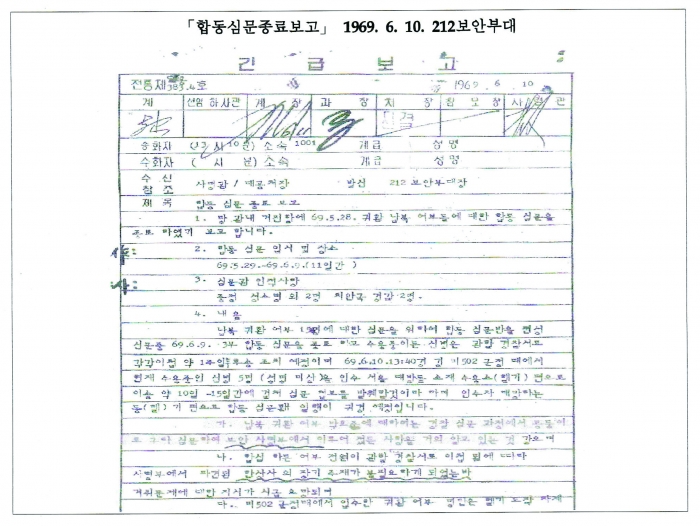 「합동심문종료보고」 1969. 6. 10. 212보안부대
긴 급 보 고
전통제 호 1969 6 10
계 선임 하사관 계 장 과 장 처 장 참 모 장 사 령 관
송화자 ( 시 10분) 소속 1001 계급 성명
수화자 ( 시 분) 소속 계급 성명
수신
참조 사령관 / 대공처장 발신 212 보안부대장
제 목 합동 심문 종료 보고
1. 당 관내 거진항에 69.5.28. 귀환 납북 어부들에 대한 합동 심문을
종료 하였기 보고 합니다.
2. 합동 심문 일시 및 장소
69.5.29.-69.6.9.(11일간)
3. 심문관 인적사항
중정 외 2명 치안국 경감 2명.
4. 내용
납북 귀환 어부 에 대한 심문을 위하여 합동 심문반을 편성
심문중 69.6.9. 합동 심문을 종료 하고 수용중이든 신병은 관할 경찰서로
각각이첩 약 조치 예정이며 69.6.10.13:40경 미502 군정 대에서
현재 수용중인 신병 5명 (성명 미상)을 인수 서울 대방동 소재 수용소(헬기) 편으로
이송 약 10일 -15일간에 걸쳐 심문 첩보를 인수차 래강하는
동(헬) 기 편으로 합동 심문관 일행이 귀경 예정입니다.
가. 납북 귀환 어부 대하여는 경찰 심문 과정에서
심문하여 보안 사령부에서 사항을 거의 알고 있는 것 같으며
나. 합심 하든 어부 전원이 관할 경찰서로 이첩 됨에 따라
사령부에서 파견된 한상사의 장기 주재가 불필요하게 되었는바
거취문제에 대한 지시가 시급 요망되며
다. 미502 군정대에서 인수한 귀환 어부 명단은 헬기 도착